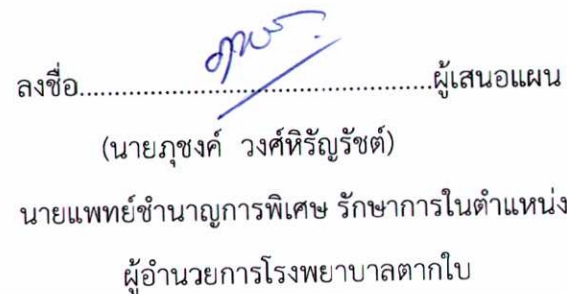 ลงชื่อ....................................................ผู้เสนอแผน
(นายภุชงค์ วงศ์หิรัญรัชต์)
นายแพทย์ชำนาญการพิเศษ รักษาการในตำแหน่ง
ผู้อำนวยการโรงพยาบาลตากใบ